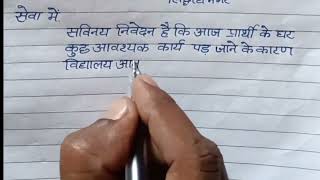 सेवा में
सविनय निवेदन है कि आज प्रार्थी के घर
कुछ आवश्यक कार्य पड़ जाने के कारण
विद्यालय आ